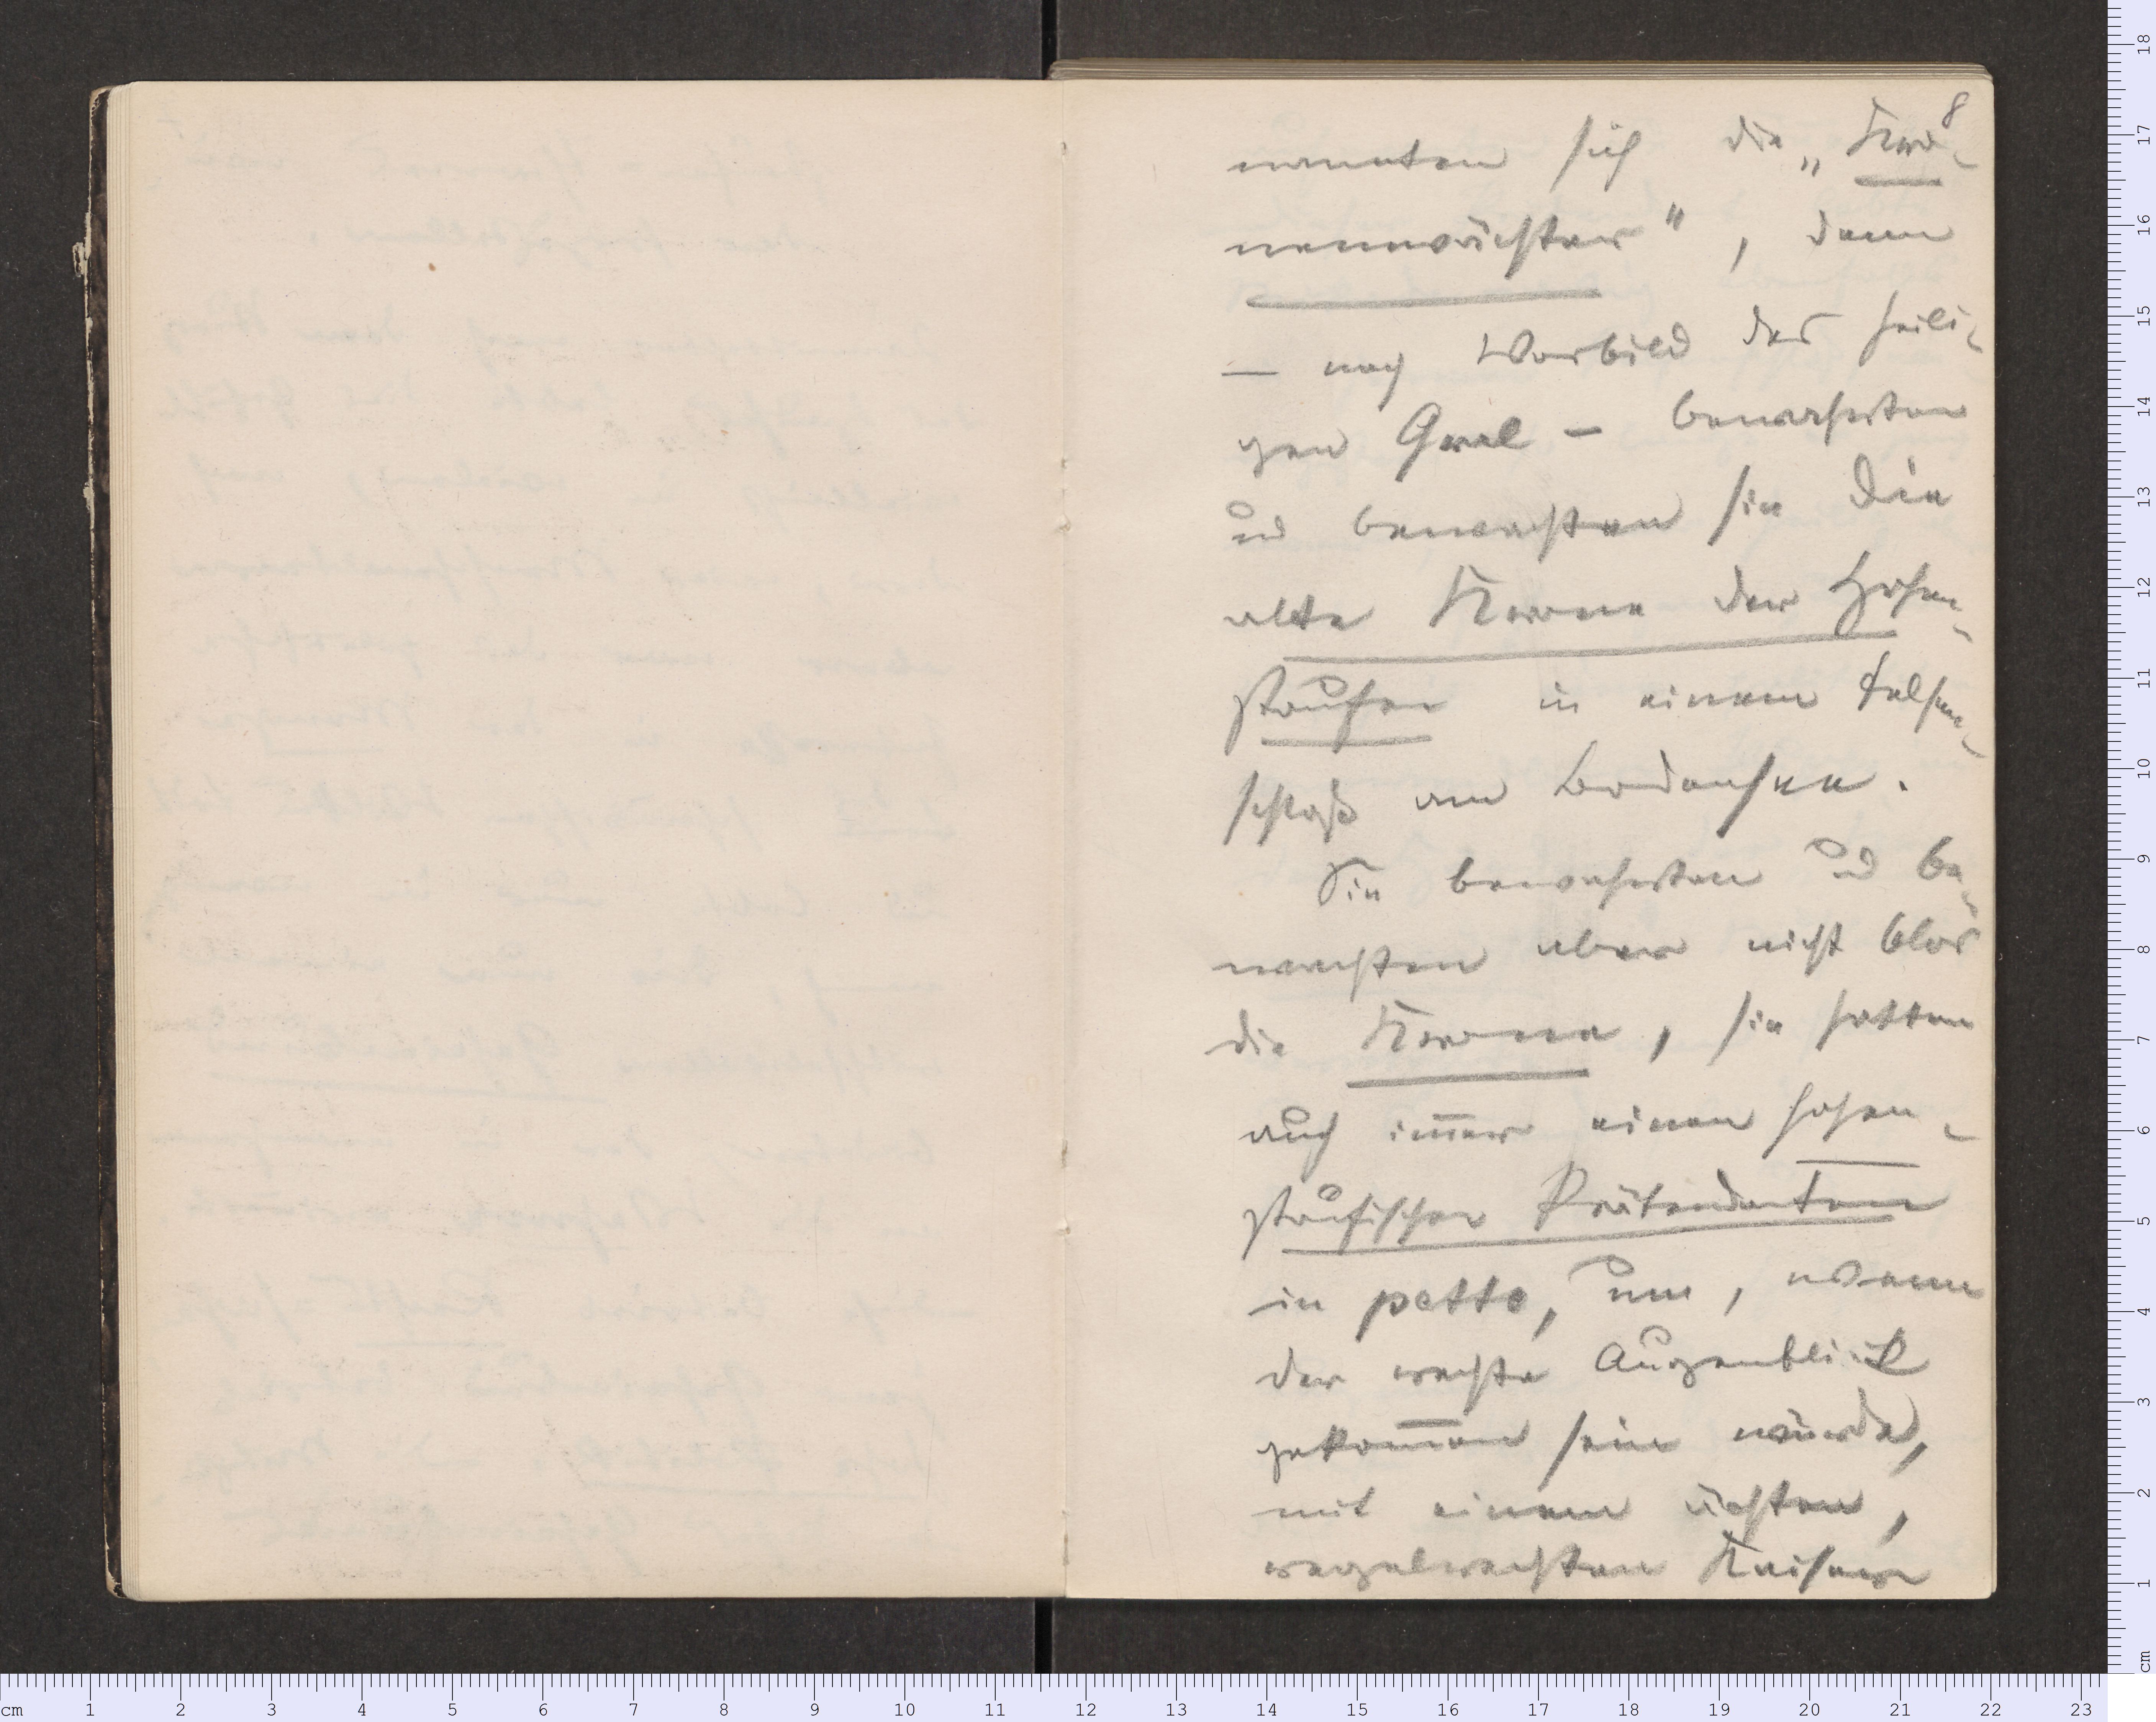 8
nannten sich die „Kro-
nenwächter", denn
— nach Vorbild des heili-
gen Gral — bewahrten
und bewachten sie die
alte Krone der Hohen-
staufen in einem Felsen-
schloß am Bodensee.
Sie bewahrten und be-
wachten aber nicht blos
die Krone, sie hatten
auch im̅er einen hohen-
staufischen Prätendenten
in petto, um, wenn
der rechte Augenblick
gekom̅en sein würde,
mit einem ächten,
regelrechten Kaiser